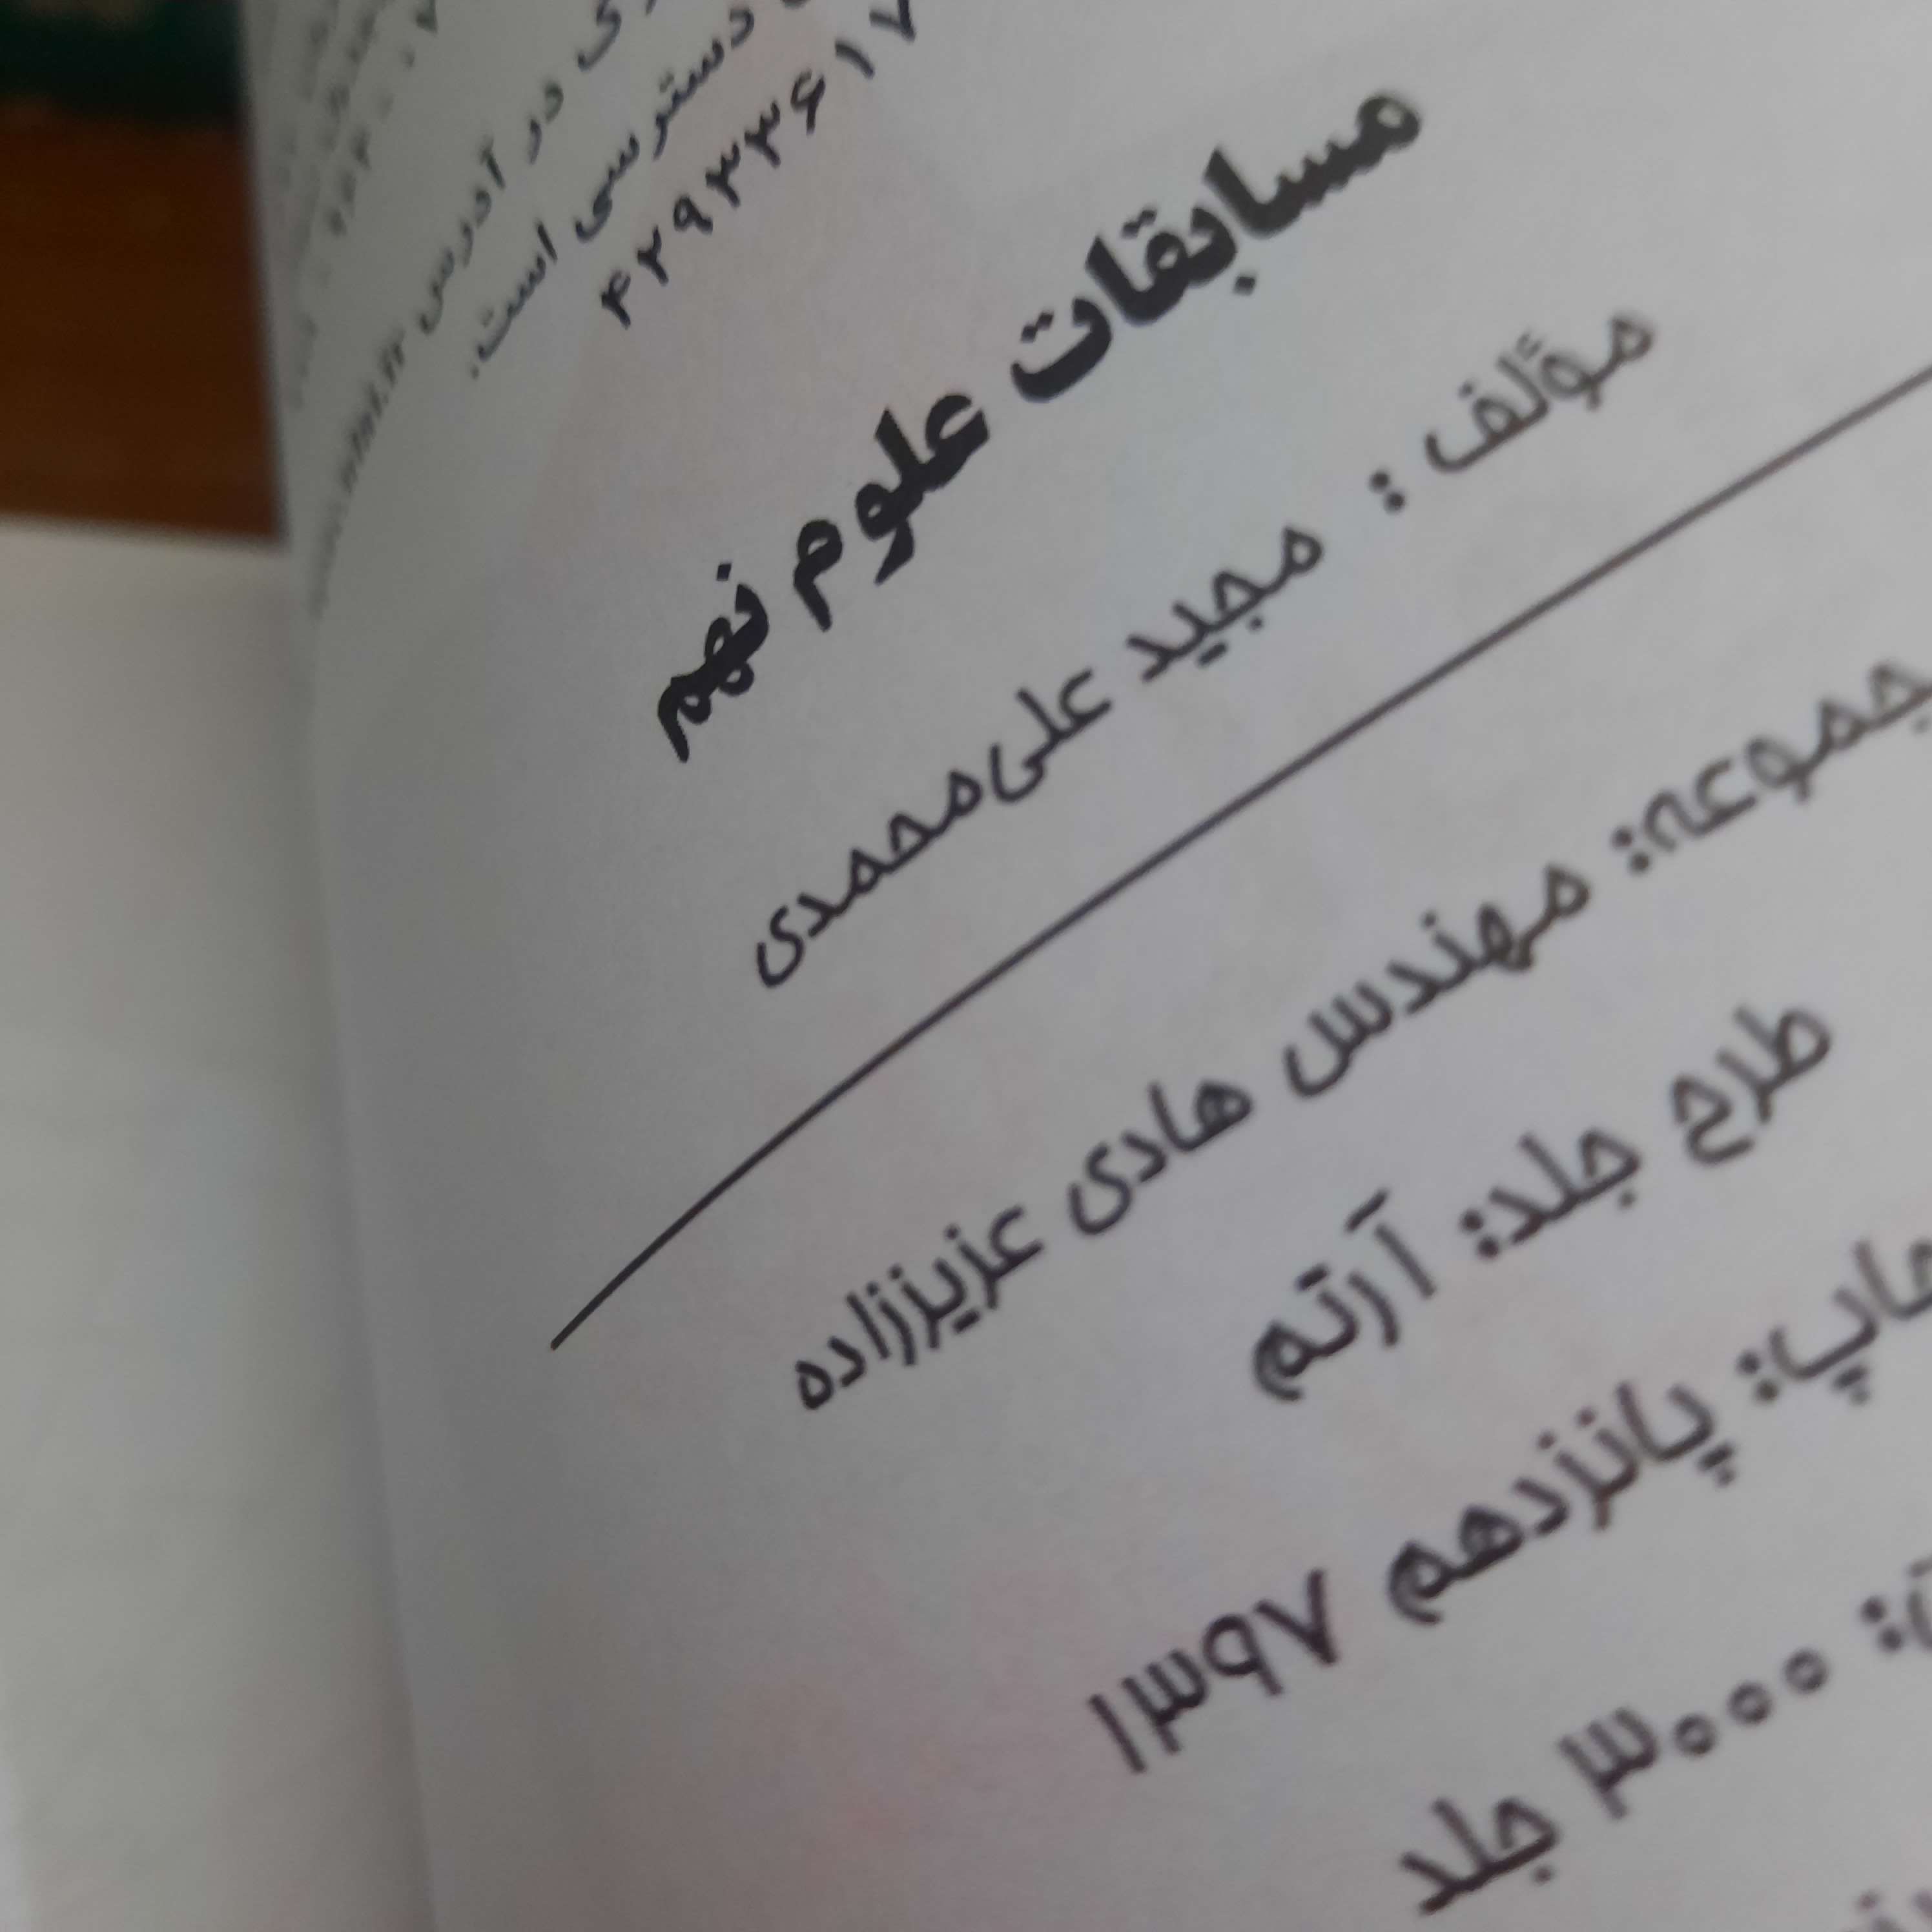 در آدرس
دسترسی است.
۴۲۹۳۳۶۱۷
مسابقات علوم نهم
مؤلف : مجید علی‌محمدی
مهندس هادی عزیززاده
طرح جلد: آرتم
پانزدهم ۱۳۹۷
۳۰۰۰ جلد